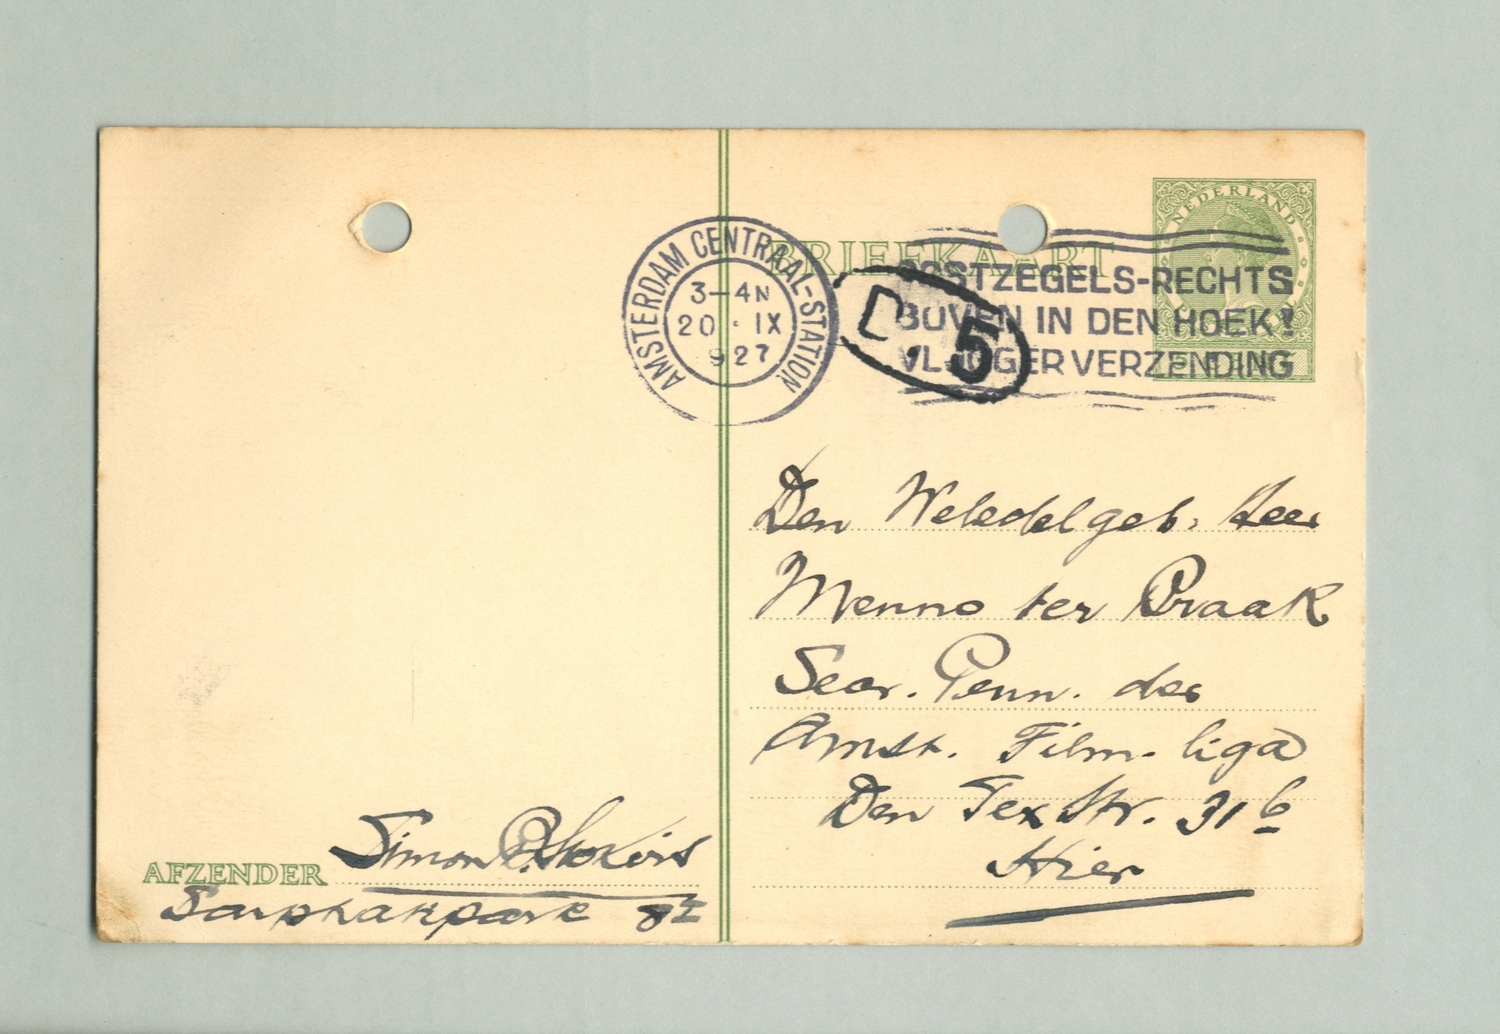 NEDERLAND
BRIEFKAART
AMSTERDAM CENTRAAL-STATION
3-4N
20 · IX
927
POSTZEGELS-RECHTS
BOVEN IN DEN HOEK!
VLUGGER VERZENDING
D. 5
Den Weledelgeb. Heer
Menno ter Braak
Secr. Penn. der
Amst. Film-liga
Den Tex Str. 31 b
Hier
AFZENDER Simon
Sarphatipark